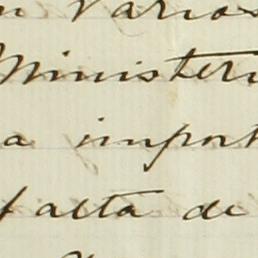 n varios
Ministeri
a import
falta de